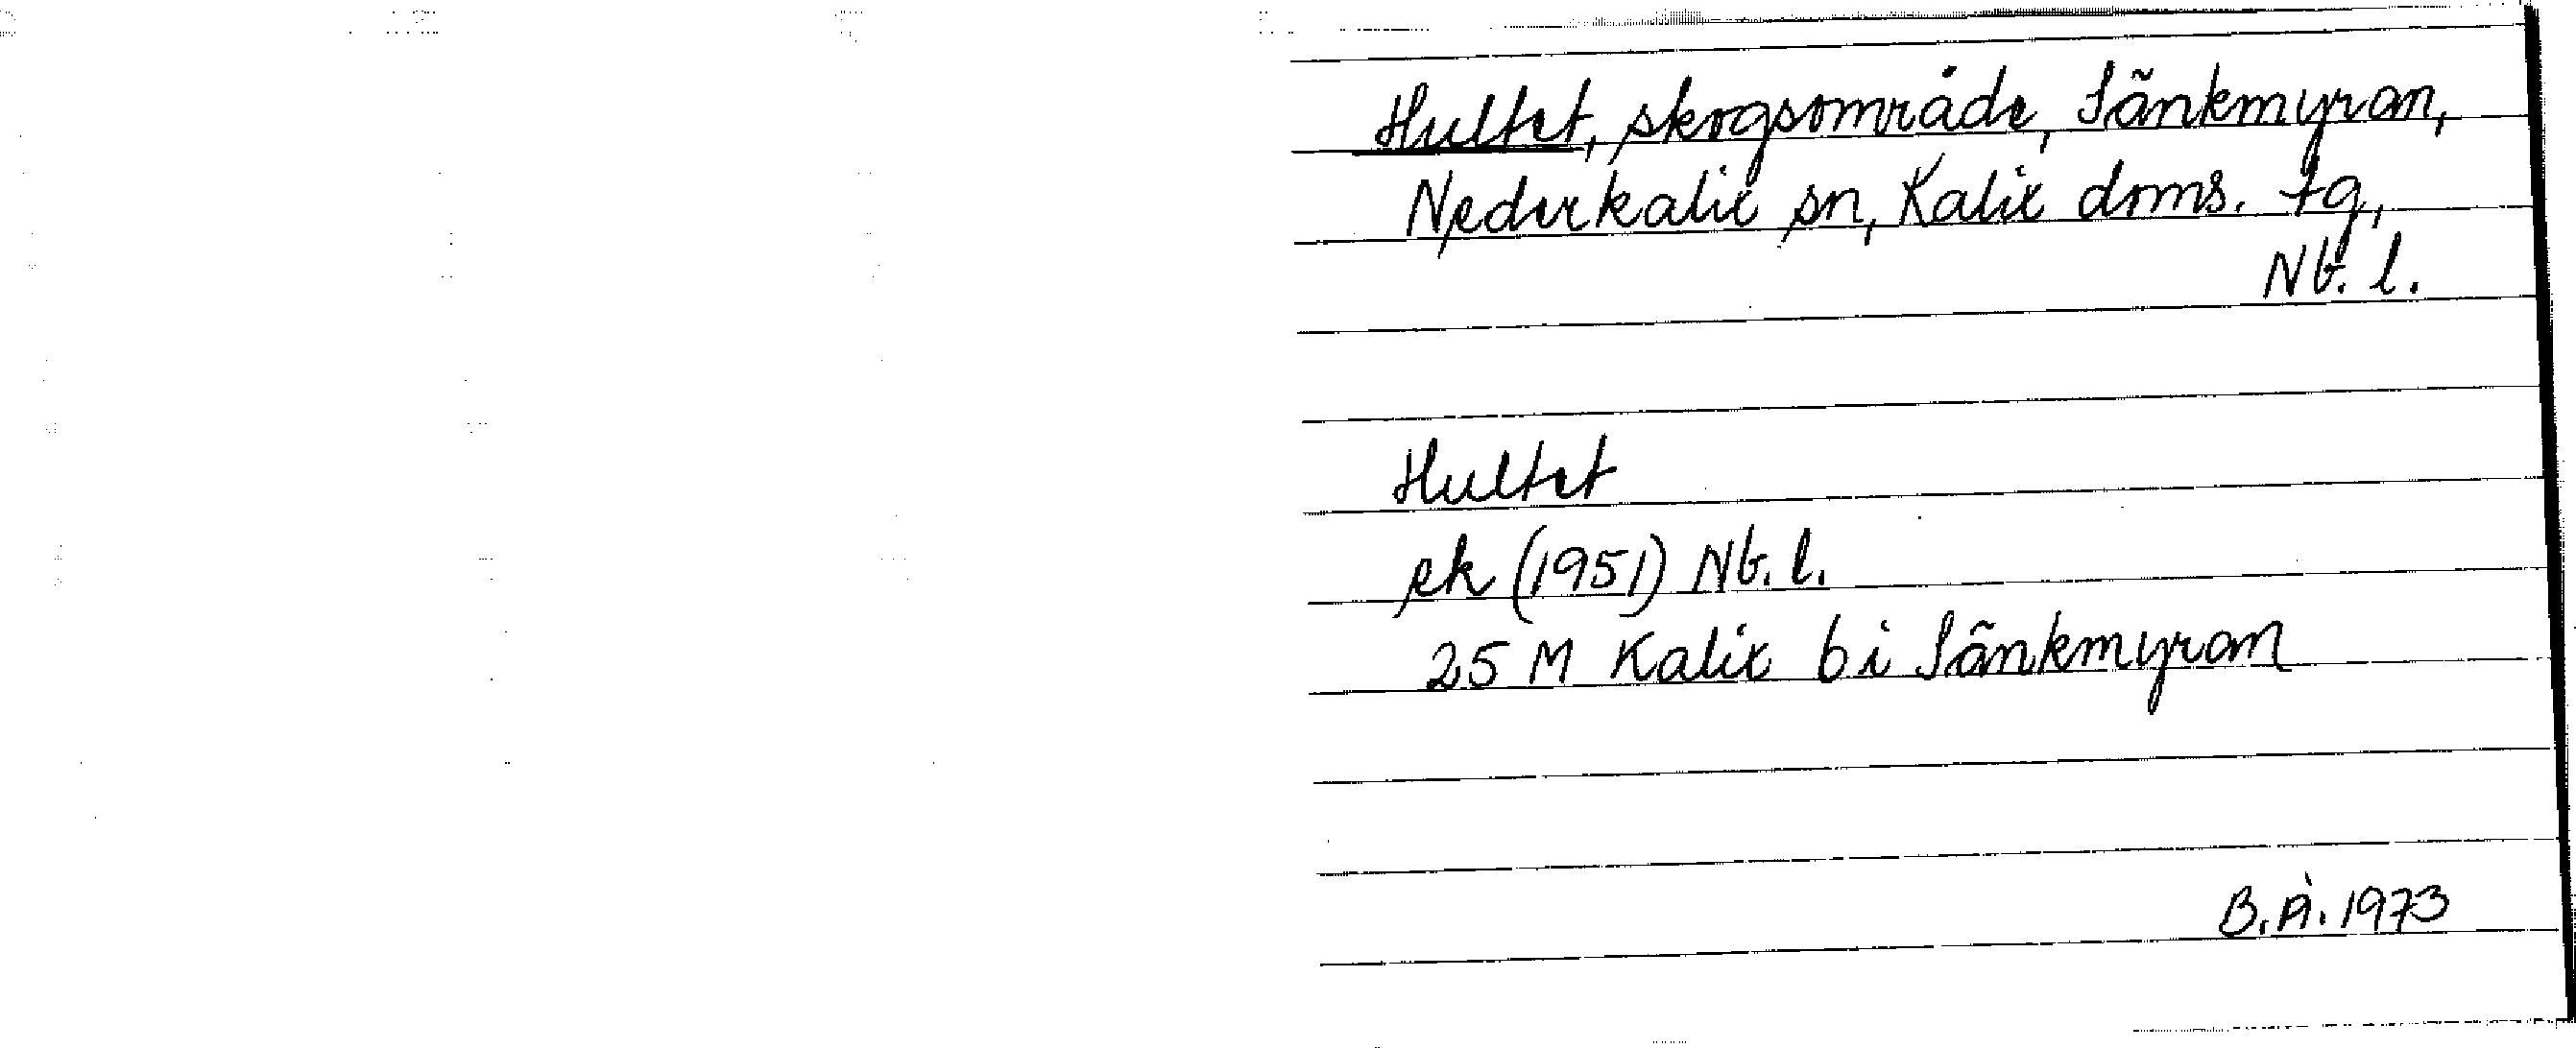 Hultet, skogsområde, Sänkmyran,
Nederkalix sn, Kalix doms. tg,
Nb. l.
Hultet
ek (1951) Nb. l.
25 M Kalix 6 i Sänkmyran
B.Å. 1973